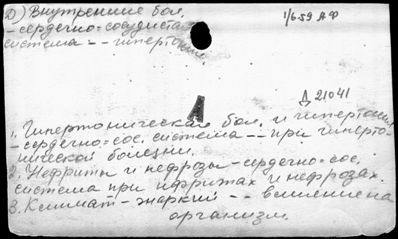 Д) Внутренние бол.
1/659 АФ
- сердечно-сосудистая
система -- гипертония
А
Д 21041
1. Гипертоническая бол. и гипертония
- сердечно=сос. система -- при гиперто-
нической болезни.
2. Нефриты и нефрозы - сердечно=сос.
система при нефритах и нефрозах.
3. Климат - жаркий -- влияние на
организм.